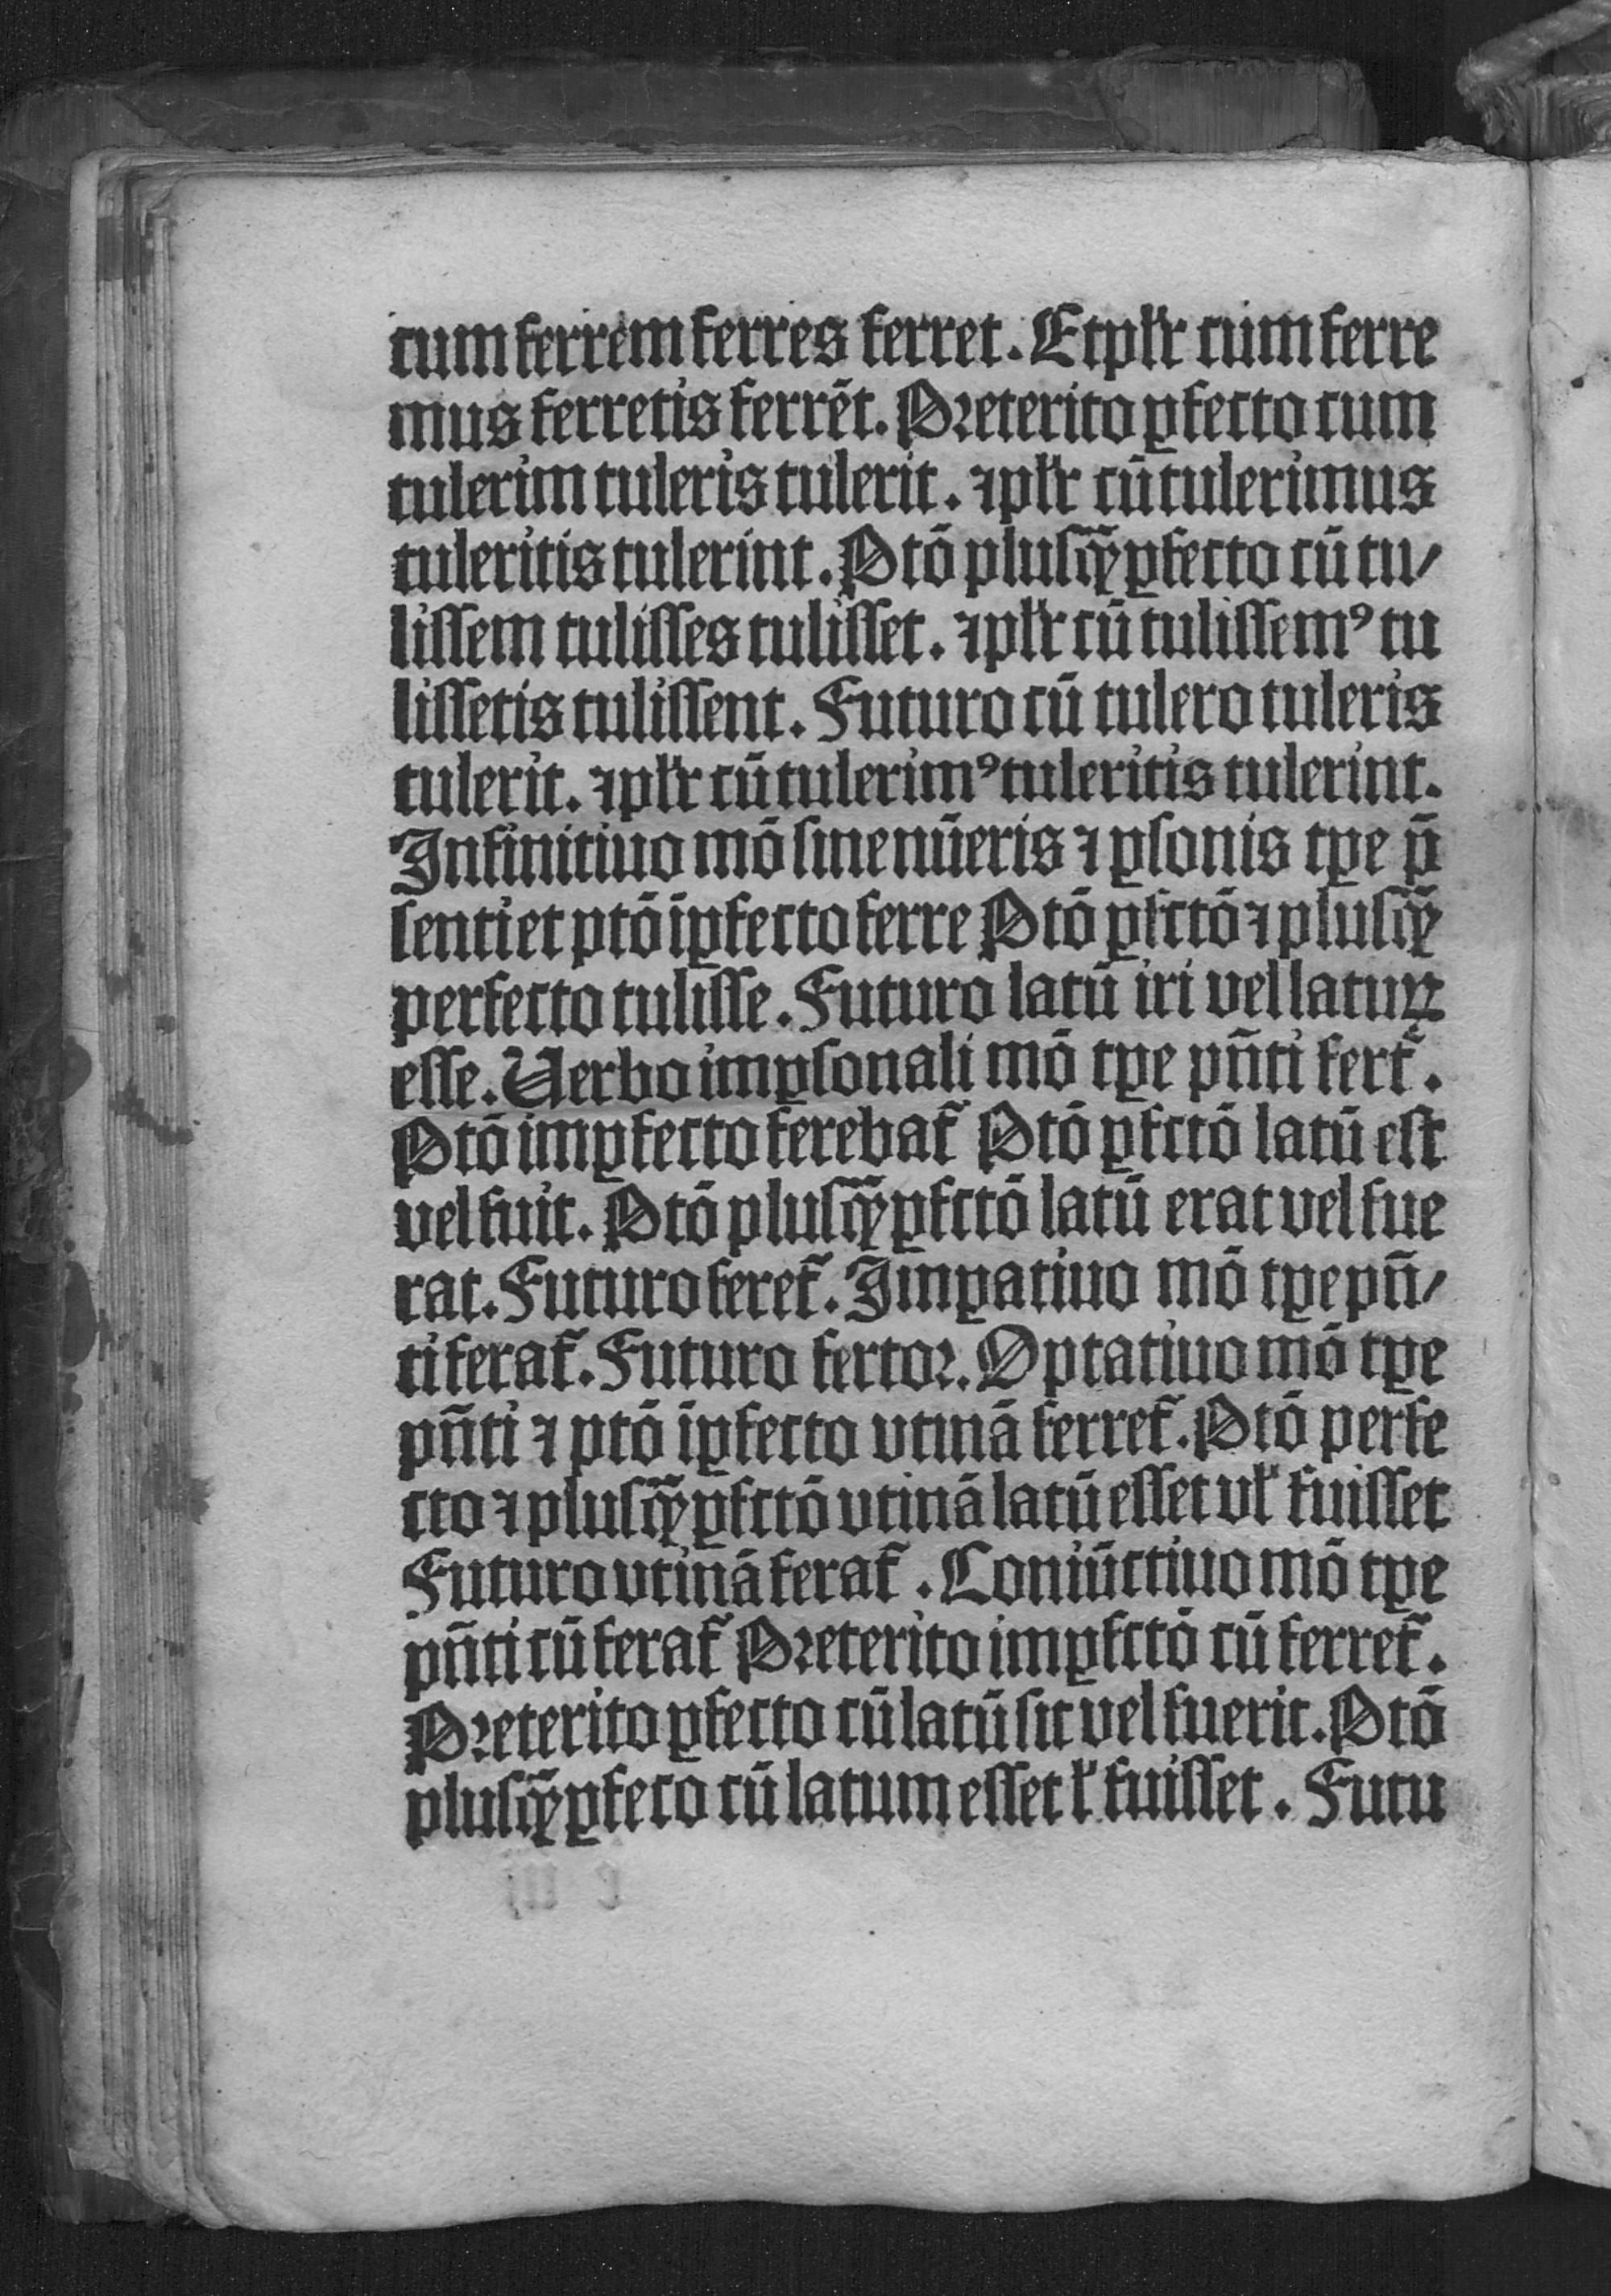 cum ferrem ferres ferret. Et plr̃ cum ferre
mus ferretis ferrēt. Preterito ꝑfecto cum
tulerim tuleris tulerit. ⁊ plr̃ cū tulerimus
tuleritis tulerint. Ptō plusꝙ̄ꝑfecto cū tu/
lissem tulisses tulisset. ⁊ plr̃ cū tulissemꝰ tu
lissetis tulissent. Futuro cū tulero tuleris
tulerit. ⁊ plr̃ cū tulerimꝰ tuleritis tulerint.
Infinitiuo mō sine nūeris ⁊ ꝑsonis tꝑe p̄
senti et ptō īꝑfecto ferre Ptō ꝑfctō ⁊ plusꝙ̄
perfecto tulisse. Futuro latū iri vel laturꝝ
esse. Uerbo imꝑsonali mō tꝑe pñti fert᷑.
Ptō imꝑfecto ferebat᷑ Ptō ꝑfctō latū est
vel fuit. Ptō plusꝙ̄ꝑfctō latū erat vel fue
rat. Futuro feret᷑. Imꝑatiuo mō tꝑe pñ/
ti ferat᷑. Futuro fertor. Optatiuo mō tꝑe
pñti ⁊ ptō īꝑfecto vtinā ferret᷑. Ptō perfe
cto ⁊ plusꝙ̄ꝑfctō vtinā latū esset vl̓ fuisset
Futuro vtinā ferat᷑. Coniūctiuo mō tꝑe
pñti cū ferat᷑ Preterito imꝑfctō cū ferret᷑.
Preterito ꝑfecto cū latū sit vel fuerit. Ptō
plusꝙ̄ꝑfeco cū latum esset l̓ fuisset. Futu